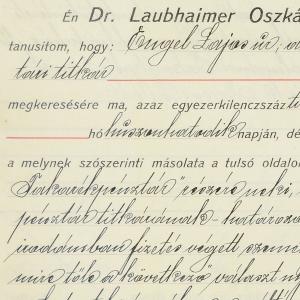 Én Dr. Laubhaimer Oszká
tanusitom, hogy: Engel Lajos úr, a
tári titkár
megkeresésére ma, azaz egyezerkilenczszáz ti
hó huszonhatodik napján, dé
a melynek szószerinti másolata a tulsó oldalo
Takarékpénztár" részére neki,
pénztár titkárának - határozo
irodámban fizetés végett szemé
mire tőle a következő választ n